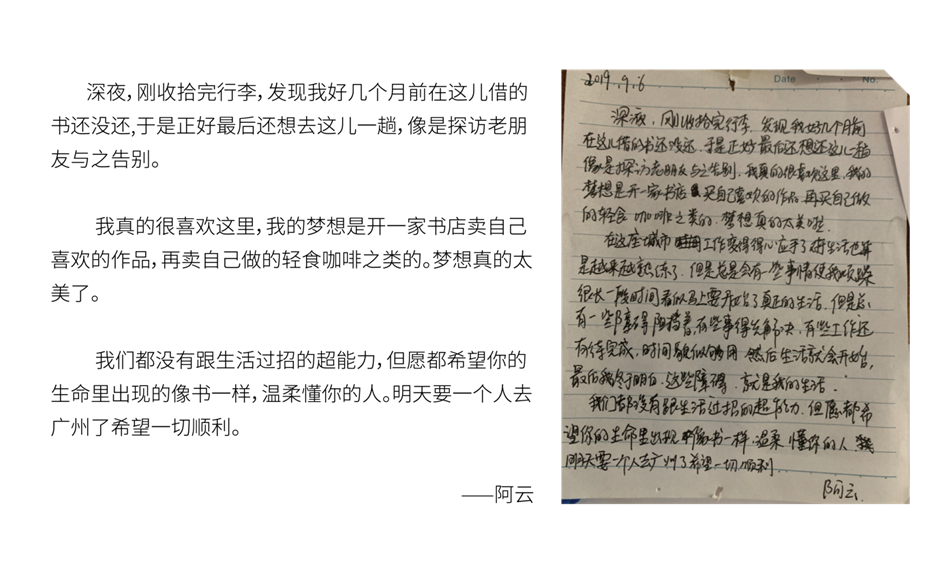 深夜，刚收拾完行李，发现我好几个月前在这儿借的
书还没还,于是正好最后还想去这儿一趟，像是探访老朋
友与之告别。
我真的很喜欢这里，我的梦想是开一家书店卖自己
喜欢的作品，再卖自己做的轻食咖啡之类的。梦想真的太
美了。
我们都没有跟生活过招的超能力，但愿都希望你的
生命里出现的像书一样，温柔懂你的人。明天要一个人去
广州了希望一切顺利。
——阿云
2019.9.6
Date No.
深夜，刚收拾完行李，发现我好几个月前
在这儿借的书还没还，于是正好最后还想还这儿一趟
像是探访老朋友与之告别，我真的很喜欢这里，我的
梦想是开一家书店 买自己喜欢的作品 再买自己做
的轻食 咖啡之类的，梦想真的太美啦.
在这座城市 工作变得得心应手了 生活也算
是越来越熟练了，但是总是会有一些事情使我烦躁
很长一段时间看似马上要开始了真正的生活，但是总
有一些障碍阻挡着，有些事得先解决，有些工作还
有待完成，时间貌似够用 然后生活就会开始，
最后我终于明白，这些障碍，就是我的生活.
我们都没有跟生活过招的超能力，但愿都希
望你的生命里出现 像书一样，温柔 懂你的人
明天要一个人去广州了希望一切顺利
阿云